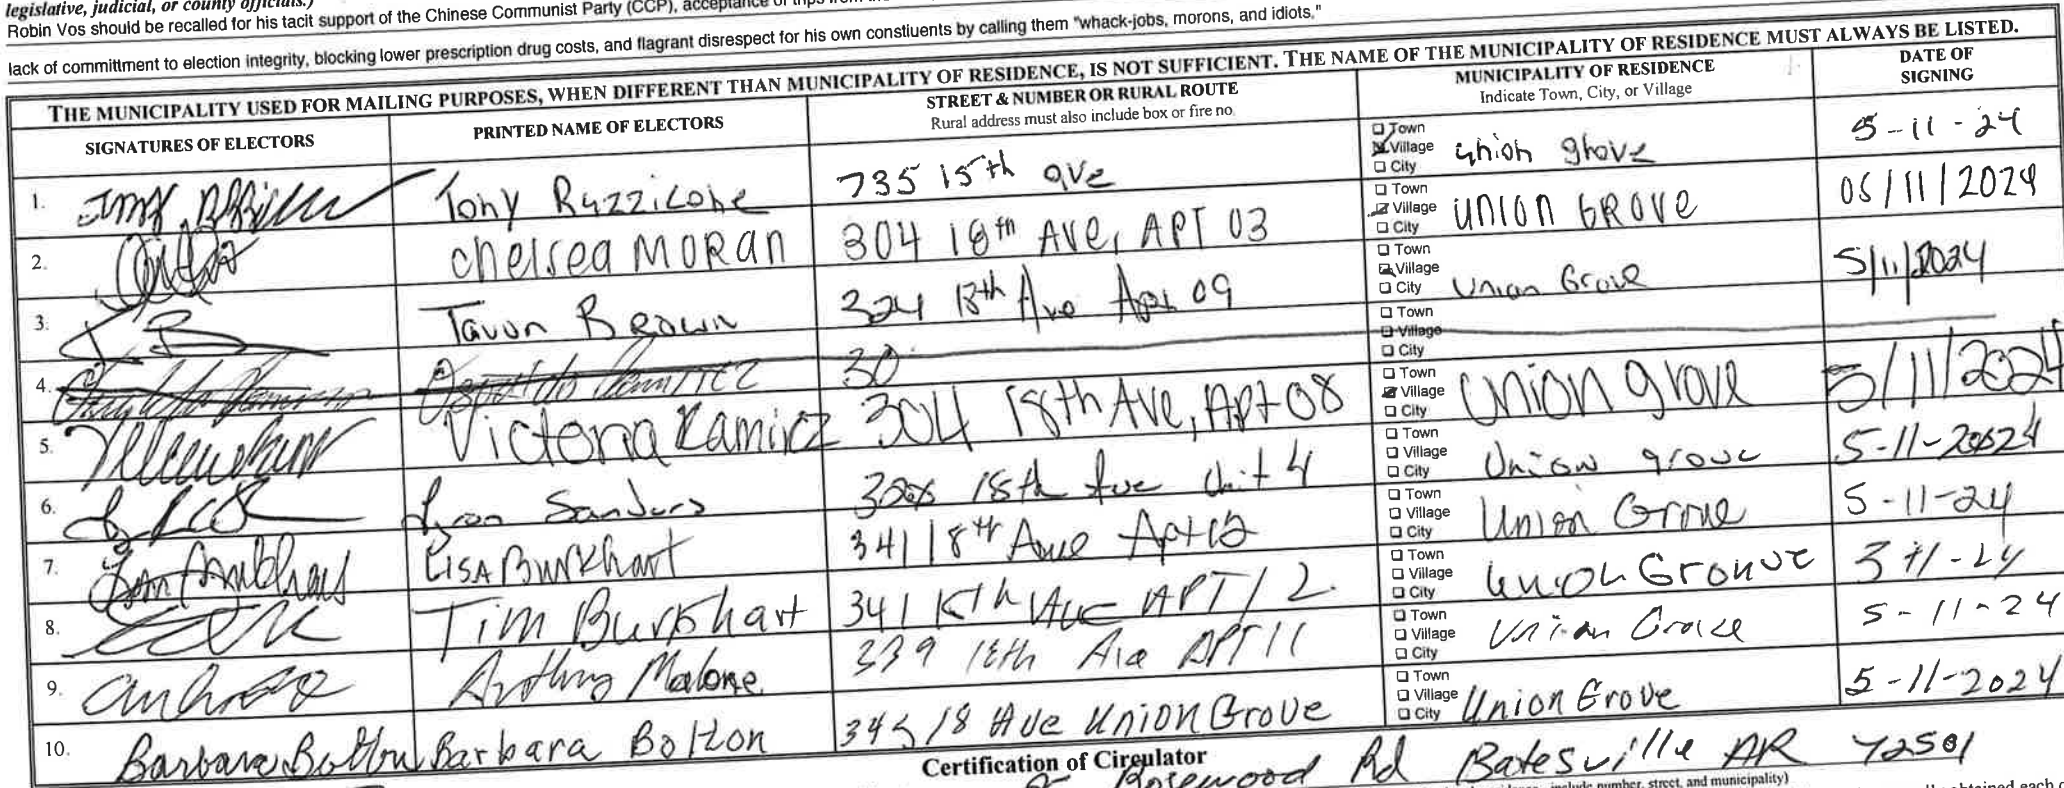 legislative, judicial, or county officials.)
Robin Vos should be recalled for his tacit support of the Chinese Communist Party (CCP), acceptance of trips from the
lack of committment to election integrity, blocking lower prescription drug costs, and flagrant disrespect for his own constiuents by calling them "whack-jobs, morons, and idiots,"
THE MUNICIPALITY USED FOR MAILING PURPOSES, WHEN DIFFERENT THAN MUNICIPALITY OF RESIDENCE, IS NOT SUFFICIENT. THE NAME OF THE MUNICIPALITY OF RESIDENCE MUST ALWAYS BE LISTED.
SIGNATURES OF ELECTORS PRINTED NAME OF ELECTORS STREET & NUMBER OR RURAL ROUTE MUNICIPALITY OF RESIDENCE DATE OF
Rural address must also include box or fire no. Indicate Town, City, or Village SIGNING
1. Tony Ruzzicone 735 15th ave Town Village City union grove 5-11-24
2. Chelsea MORan 304 18th AVe, APT 03 Town Village City UNION GROVe 05/11/2024
3. Tavon Brown 324 18th Ave Apt 09 Town Village City Union Grove 5/11/2024
4. 30 Town Village City
5. Victoria Ramirez 304 18th Ave, Apt 08 Town Village City Union grove 5/11/2024
6. Sanders 18th Ave Unit 4 Town Village City Union grove 5-11-
7. Lisa Burkhart 341 18th Ave Apt 12 Town Village City Union Grove 5-11-24
8. Tim Burkhart 341 Ave APT 12 Town Village City Gronve 11-24
9. Malone 339 18th APT 11 Town Village City Union Grove 5-11-24
10. Barbara Bolton Barbara Bolton 345 18 Ave Union Grove Town Village City Union Grove 5-11-2024
Certification of Circulator
Rosewood Rd Batesville AR 72501
include number, street, and municipality)